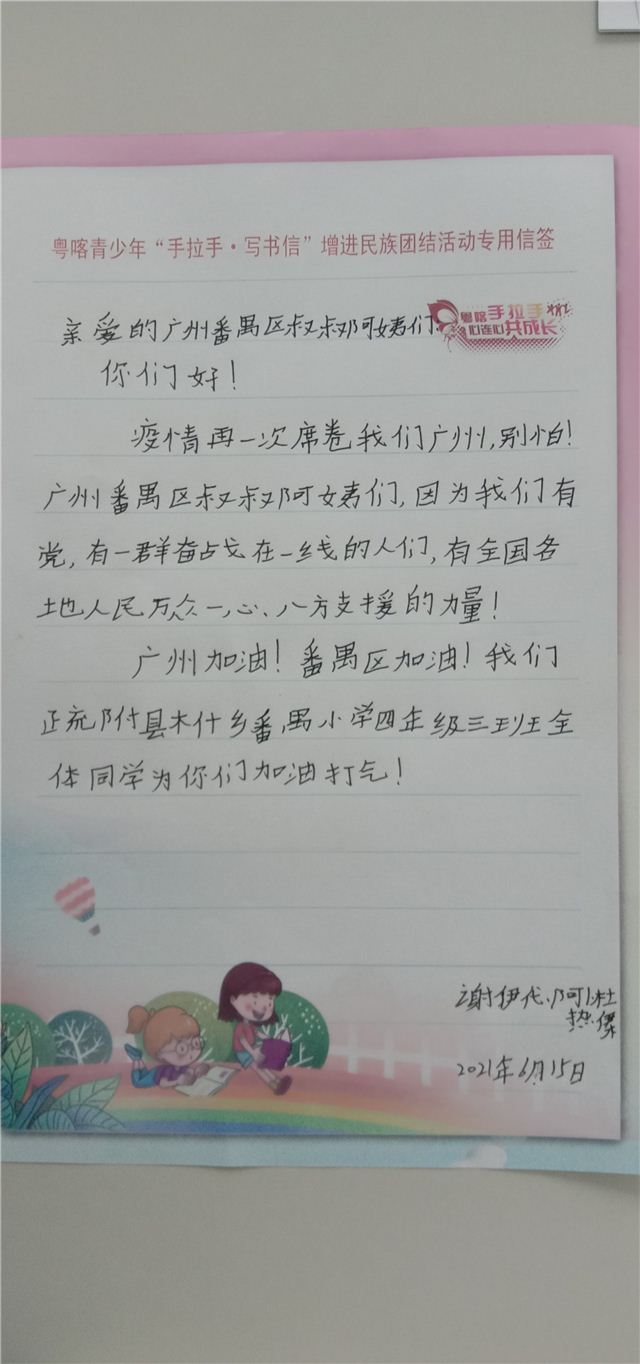 粤喀青少年“手拉手·写书信”增进民族团结活动专用信签
粤喀手拉手
心连心共成长
亲爱的广州番禺区叔叔阿姨们:
你们好!
疫情再一次席卷我们广州,别怕!
广州番禺区叔叔阿姨们,因为我们有
党,有一群奋战在一线的人们,有全国各
土地人民万众一心、八方支援的力量!
广州加油!番禺区加油!我们
疏附县木什乡番禺小学四年级三班全
体同学为你们加油打气!
谢伊代·阿卜杜
热
2021年6月15日